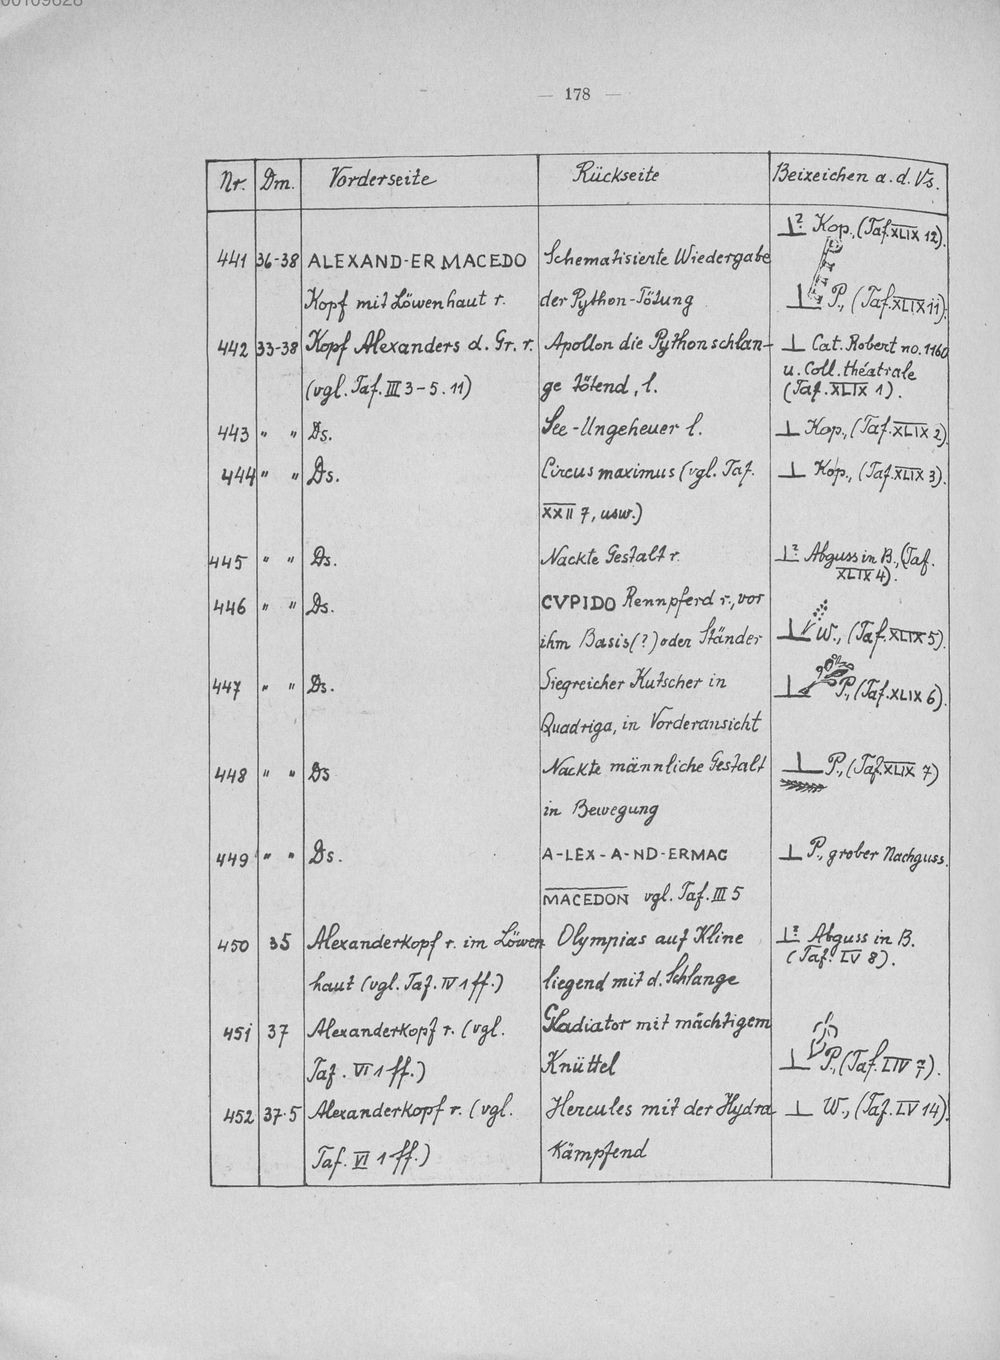 00109828
— 178 —
Nr. Dm. Vorderseite Rückseite Beizeichen a. d. Vs.
⊥? Kop., (Taf. XLIX 12).
441 36-38 ALEXAND-ER MACEDO Schematisierte Wiedergabe
Kopf mit Löwenhaut r. der Python-Tötung ⊥ P., (Taf. XLIX 11).
442 33-38 Kopf Alexanders d. Gr. r. Apollon die Pythonschlan- ⊥ Cat. Robert no. 1160
u. Coll. théatrale
(vgl. Taf. III 3-5. 11) ge tötend, l. (Taf. XLIX 1).
443 " " Ds. See-Ungeheuer l. ⊥ Kop., (Taf. XLIX 2).
444 " " Ds. Circus maximus (vgl. Taf. ⊥ Kop., (Taf. XLIX 3).
XXII 7, usw.)
445 " " Ds. Nackte Gestalt r. ⊥? Abguss in B., (Taf.
XLIX 4).
446 " " Ds. CVPIDO Rennpferd r., vor
ihm Basis (?) oder Ständer ⊥ W., (Taf. XLIX 5).
447 " " Ds. Siegreicher Kutscher in ⊥ P., (Taf. XLIX 6).
Quadriga, in Vorderansicht
448 " " Ds Nackte männliche Gestalt ⊥ P., (Taf. XLIX 7)
in Bewegung
449 " " Ds. A-LEX-A-ND-ERMAC ⊥ P., grober Nachguss.
MACEDON vgl. Taf. III 5
450 35 Alexanderkopf r. im Löwen Olympias auf Kline ⊥? Abguss in B.
(Taf. LV 8).
haut (vgl. Taf. IV 1 ff.) liegend mit d. Schlange
451 37 Alexanderkopf r. (vgl. Gladiator mit mächtigem
Taf. VI 1 ff.) Knüttel ⊥ P., (Taf. LIV 7).
452 37·5 Alexanderkopf r. (vgl. Hercules mit der Hydra ⊥ W., (Taf. LV 14).
Taf. VI 1 ff.) kämpfend